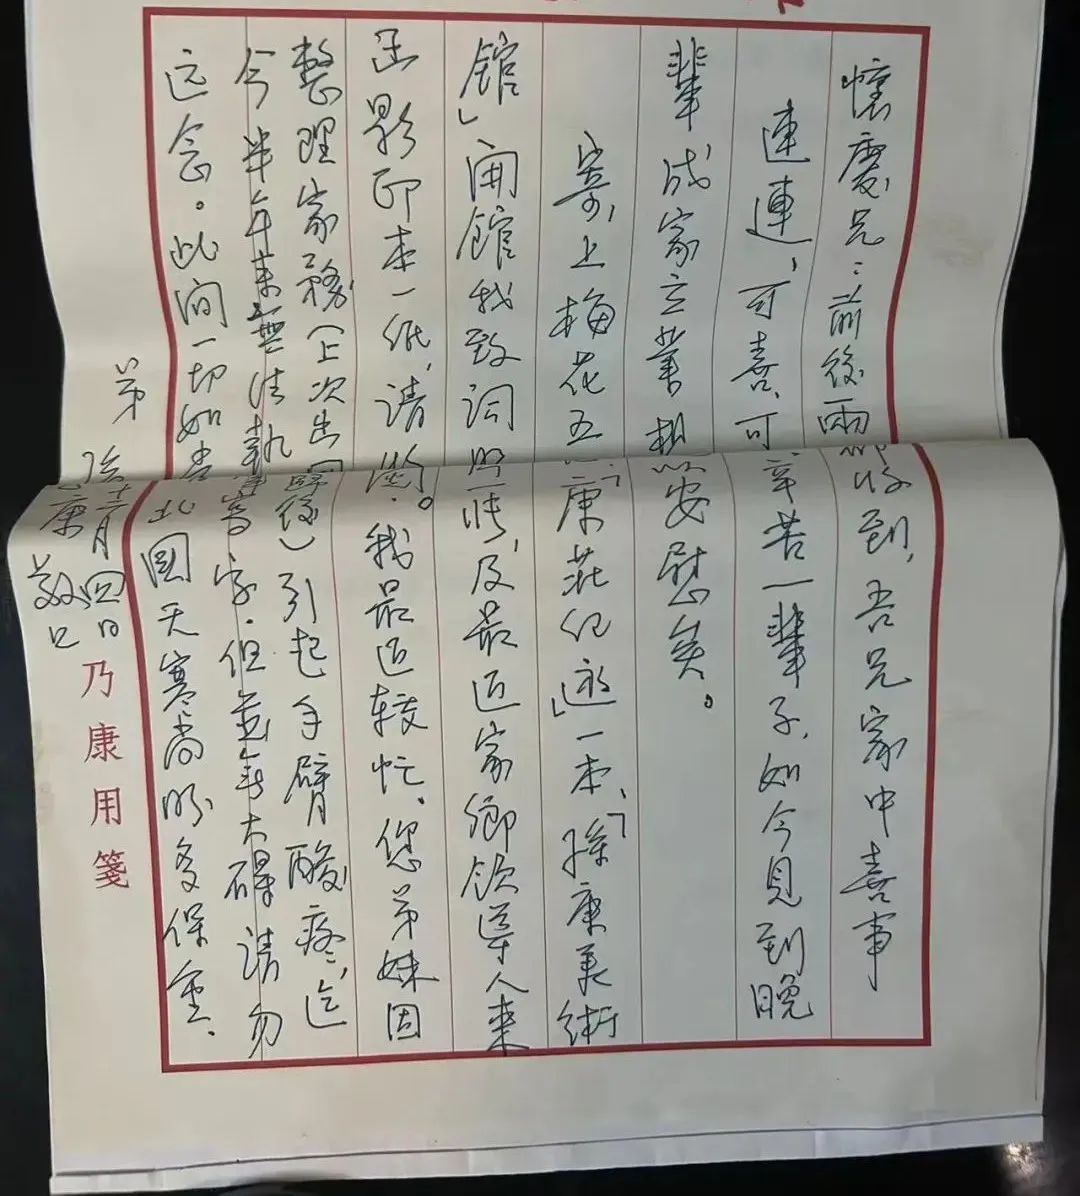 懷慶兄：前後兩收到，吾兄家中喜事
連連，可喜可辛苦一輩子，如今見到晚
輩成家立業安慰矣。
寄上梅花五「康莊紀遊」一本，「孫康美術
館」開館我致詞聘，及最近家鄉領導人來
函影印本一纸，请。我最近较忙，您弟妹因
整理家務（上次出國後）引起手臂酸疼，迄
今半年来無法執寫字，但並無大礙请勿
远念。此间一切如北國天寒尚盼多保重。
弟康敬上
十二月四日
乃康用箋